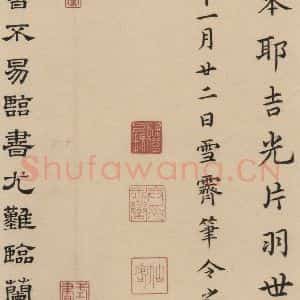 本耶吉光片羽世
十一月廿二日雪霽筆令
不易臨書尤難臨蘭
Shufawang.CN